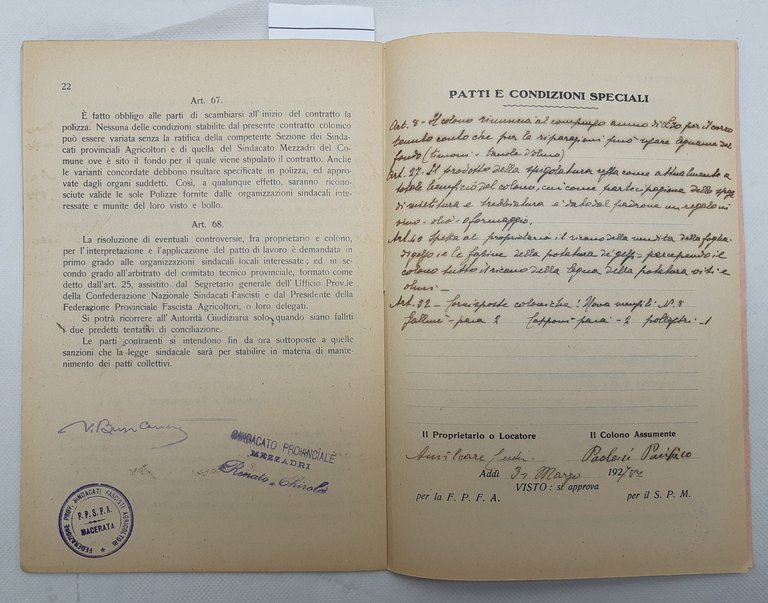 22
Art. 67.
È fatto obbligo alle parti di scambiarsi all'inizio del contratto la
polizza. Nessuna delle condizioni stabilite dal presente contratto colonico
può essere variata senza la ratifica della competente Sezione dei Sinda-
cati provinciali Agricoltori e di quella del Sindacato Mezzadri del Co-
mune ove è sito il fondo per il quale viene stipulato il contratto. Anche
le varianti concordate debbono risultare specificate in polizza, ed appro-
vate dagli organi suddetti. Così, a qualunque effetto, saranno ricono-
sciute valide le sole Polizze fornite dalle organizzazioni sindacali inte-
ressate e munite del loro visto e bollo.
Art. 68.
La risoluzione di eventuali controversie, fra proprietario e colono,
per l'interpretazione e l'applicazione del patto di lavoro è demandata in
primo grado alle organizzazioni sindacali locali interessate; ed in se-
condo grado all'arbitrato del comitato tecnico provinciale, formato come
detto dall'art. 25, assistito dal Segretario generale dell'Ufficio Prov.le
della Confederazione Nazionale Sindacati Fascisti e dal Presidente della
Federazione Provinciale Fascista Agricoltori, o loro delegati.
Si potrà ricorrere all'Autorità Giudiziaria solo quando siano falliti
i due predetti tentativi di conciliazione.
Le parti contraenti si intendono fin da ora sottoposte a quelle
sanzioni che la legge sindacale sarà per stabilire in materia di mante-
nimento dei patti collettivi.
SINDACATO PROVINCIALE
MEZZADRI
FEDERAZIONE PROV. SINDACATI FASCISTI AGRICOLTORI
F. P. S. F. A.
MACERATA
PATTI E CONDIZIONI SPECIALI
Art. 8 - Il colono rinuncia al compenso annuo di £30 per il carro
tenuto conto che per le riparazioni può usare legname del
fondo (timoni - tavole d'olmo)
Art. 27. Il prodotto della spigolatura resta come attualmente a
totale beneficio del colono, come partecipazione delle spese
di mietitura e trebbiatura e dato dal padrone in regalo
vino - olio o formaggio.
Art. 40 Spetta al proprietario il ricavo della vendita della foglia
di gelso e le fascine della potatura de' gelsi - percependo il
colono tutto il ricavo della legna della potatura viti e
olmi -
Art. 52 - Corrisposte coloniche: Uova N. 8
Galline - paia 2 Capponi paia - 2 pollastri - 1
Il Proprietario o Locatore
Il Colono Assumente
Pacifico
Addì 31 Marzo 192
VISTO: si approva
per la F. P. F. A.
per il S. P. M.